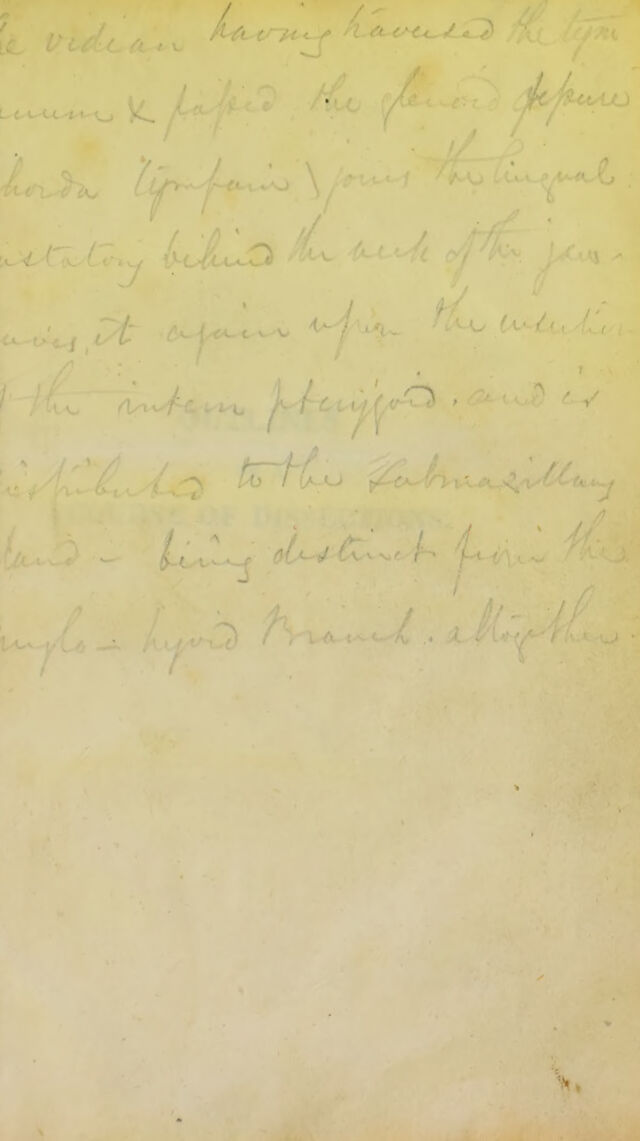 he vidian having traversed the tym
anum & passed the glenoid fissure
horda Tympani) joins the lingual
ustatory behind the neck of the jaw -
eaves it again upon the insertion
f the intern pterygoid. and is
distributed to the Submaxillary
land - being distinct from the
mylo - hyoid Branch. altogether.
COURSE OF DISSECTIONS.